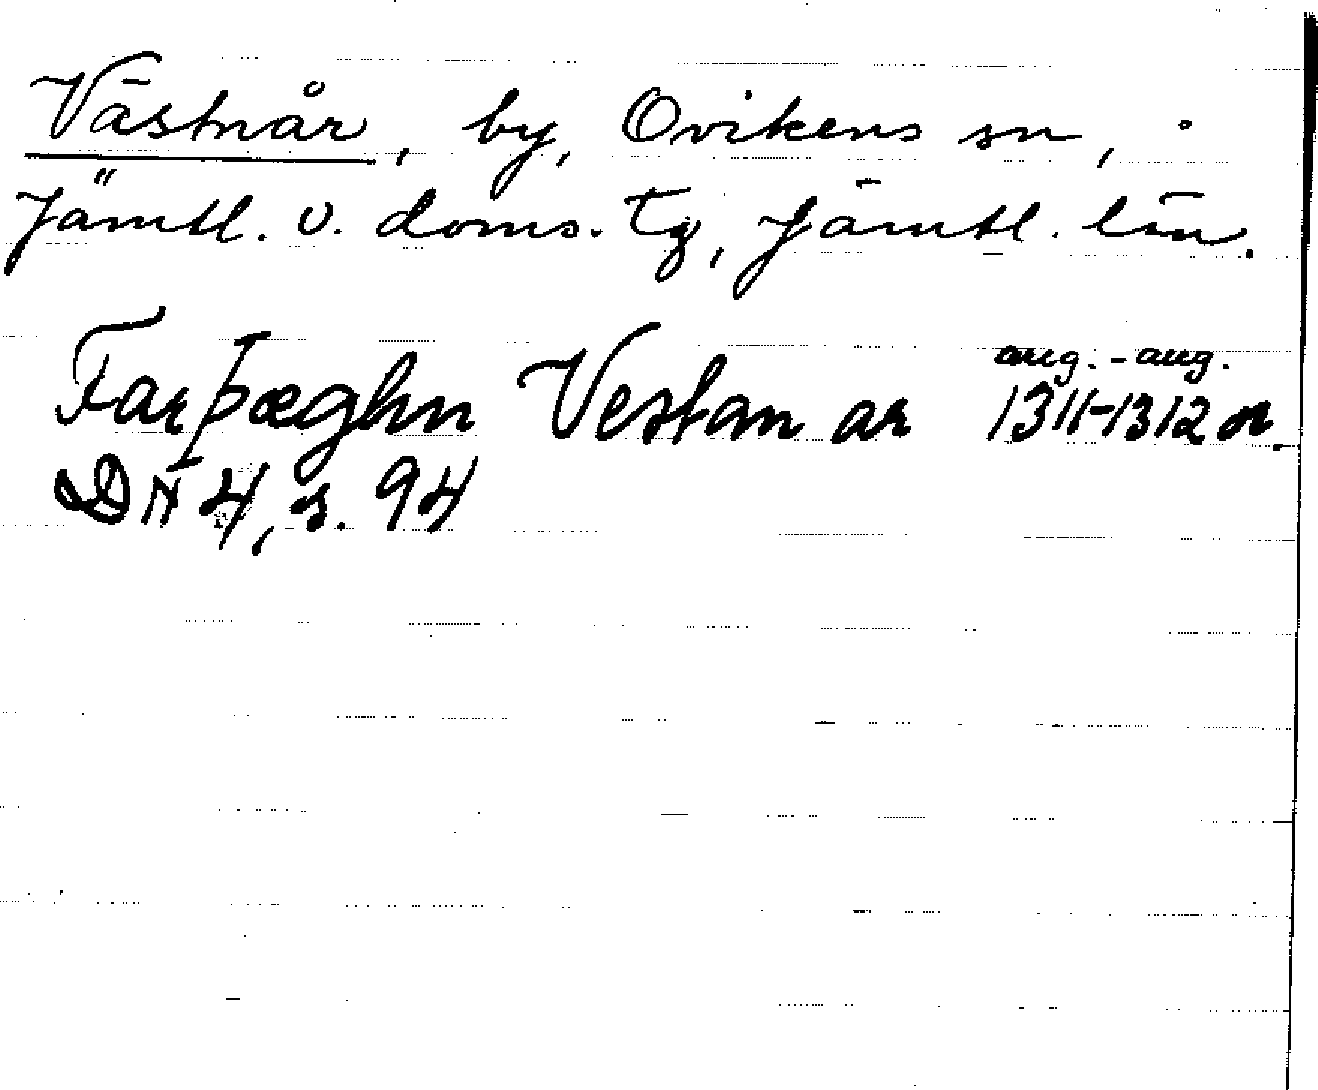 Västnår, by, Ovikens sn,
Jämtl. v. doms. tg, Jämtl. län.
aug. - aug.
Farþæghn Vestan ar 1311-1312 or.
DN 4, s. 94